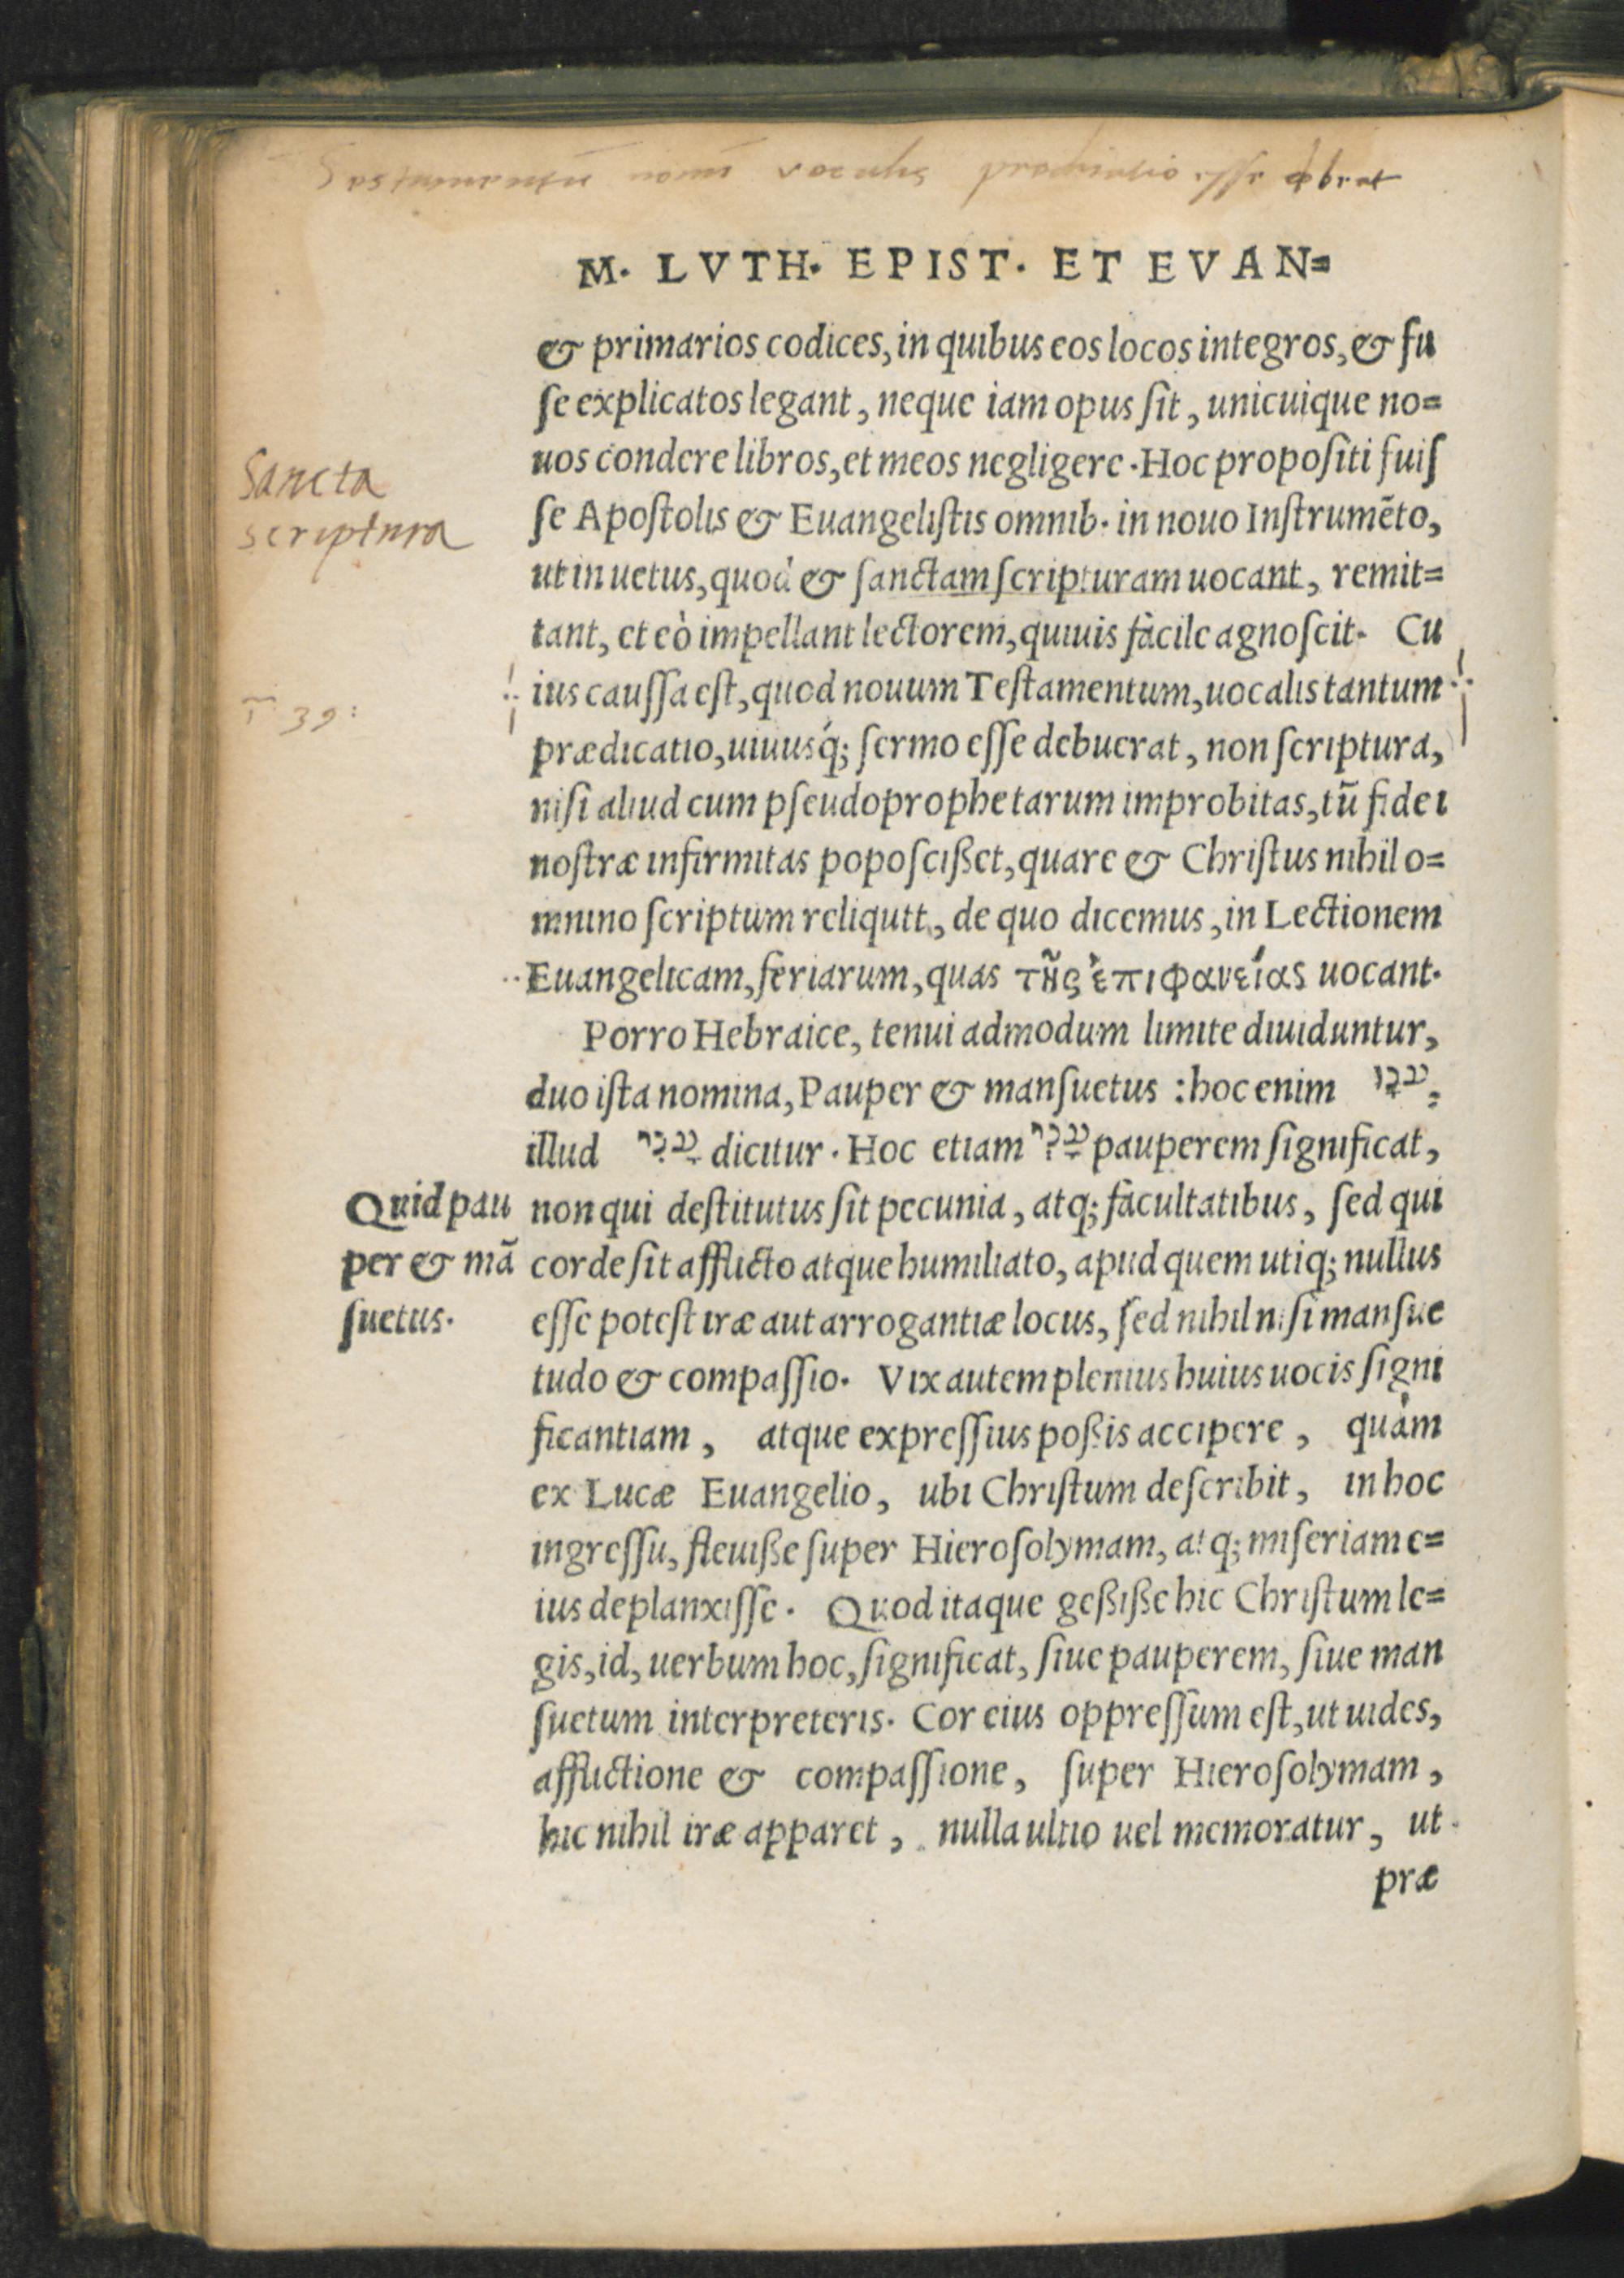 M. LVTH. EPIST. ET EVAN=
& primarios codices, in quibus eos locos integros, & fu
ſe explicatos legant, neque iam opus ſit, unicuique no=
uos condere libros, et meos negligere. Hoc propoſiti fuiſ
Sancta
ſe Apoſtolis & Euangeliſtis omnib. in nouo Inſtrumēto,
scriptura
ut in uetus, quod & ſanctam ſcripturam uocant, remit=
tant, et eò impellant lectorem, quiuis facile agnoſcit. Cu
ius cauſſa eſt, quod nouum Teſtamentum, uocalis tantum
39:
prædicatio, uiuusq́; ſermo eſſe debuerat, non ſcriptura,
niſi aliud cum pſeudoprophetarum improbitas, tū fidei
noſtræ infirmitas popoſcißet, quare & Chriſtus nihil o=
mnino ſcriptum reliqutt, de quo dicemus, in Lectionem
Euangelicam, feriarum, quas τῆς ἐπιφανείας uocant.
Porro Hebraice, tenui admodum limite diuiduntur,
duo iſta nomina, Pauper & manſuetus : hoc enim
illud dicitur. Hoc etiam pauperem ſignificat,
Quid pau
per & mā
ſuetus.
non qui deſtitutus ſit pecunia, atq; facultatibus, ſed qui
corde ſit afflicto atque humiliato, apud quem utiq; nullus
eſſe poteſt iræ aut arrogantiæ locus, ſed nihil niſi manſue
tudo & compaſſio. Vix autem plenius huius uocis ſigni
ficantiam, atque expreſſius poßis accipere, quàm
ex Lucæ Euangelio, ubi Chriſtum deſcribit, in hoc
ingreſſu, fleuiße ſuper Hieroſolymam, atq; miſeriam e=
ius deplanxiſſe. Quod itaque geßiße hic Chriſtum le=
gis, id, uerbum hoc, ſignificat, ſiue pauperem, ſiue man
ſuetum interpreteris. Cor eius oppreſſum eſt, ut uides,
afflictione & compaſſione, ſuper Hieroſolymam,
hic nihil iræ apparet, nulla ultio uel memoratur, ut
præ